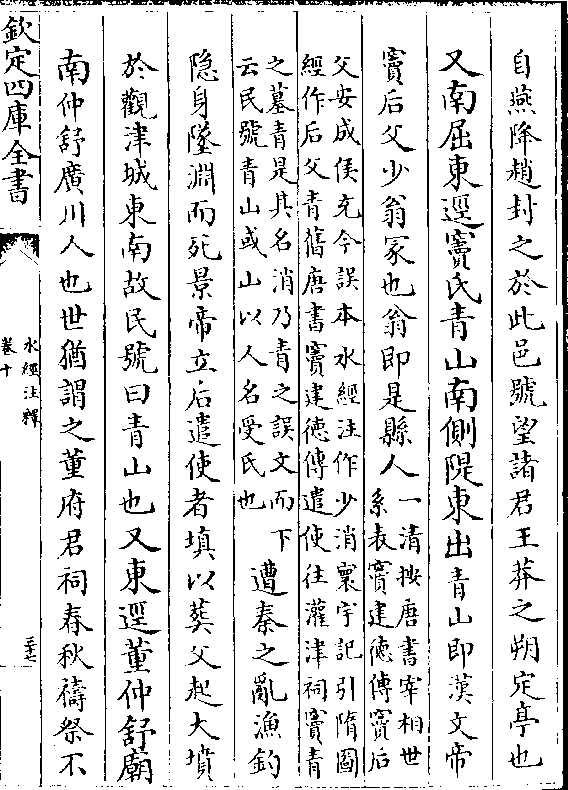 自燕降趙封之於此邑號望諸君王莽之朔定亭也
又南屈東逕竇氏青山南側隄東出青山即漢文帝
竇后父少翁冡也翁即是縣人
一清按唐書宰相世
系表竇建徳傳竇后
父安成侯充今誤本水經注作少消寰宇記引隋圖
經作后父青舊唐書竇建徳傳遣使往灌津祠竇青
之墓青是其名消乃青之誤文而下
云民號青山或山以人名受氏也
遭秦之亂漁釣
隐身墜淵而死景帝立后遣使者填以葬父起大墳
於觀津城東南故民號曰青山也又東逕董仲舒廟
南仲舒廣川人也世猶謂之董府君祠春秋禱祭不
欽定四庫全書
水經注釋
卷十
三十七